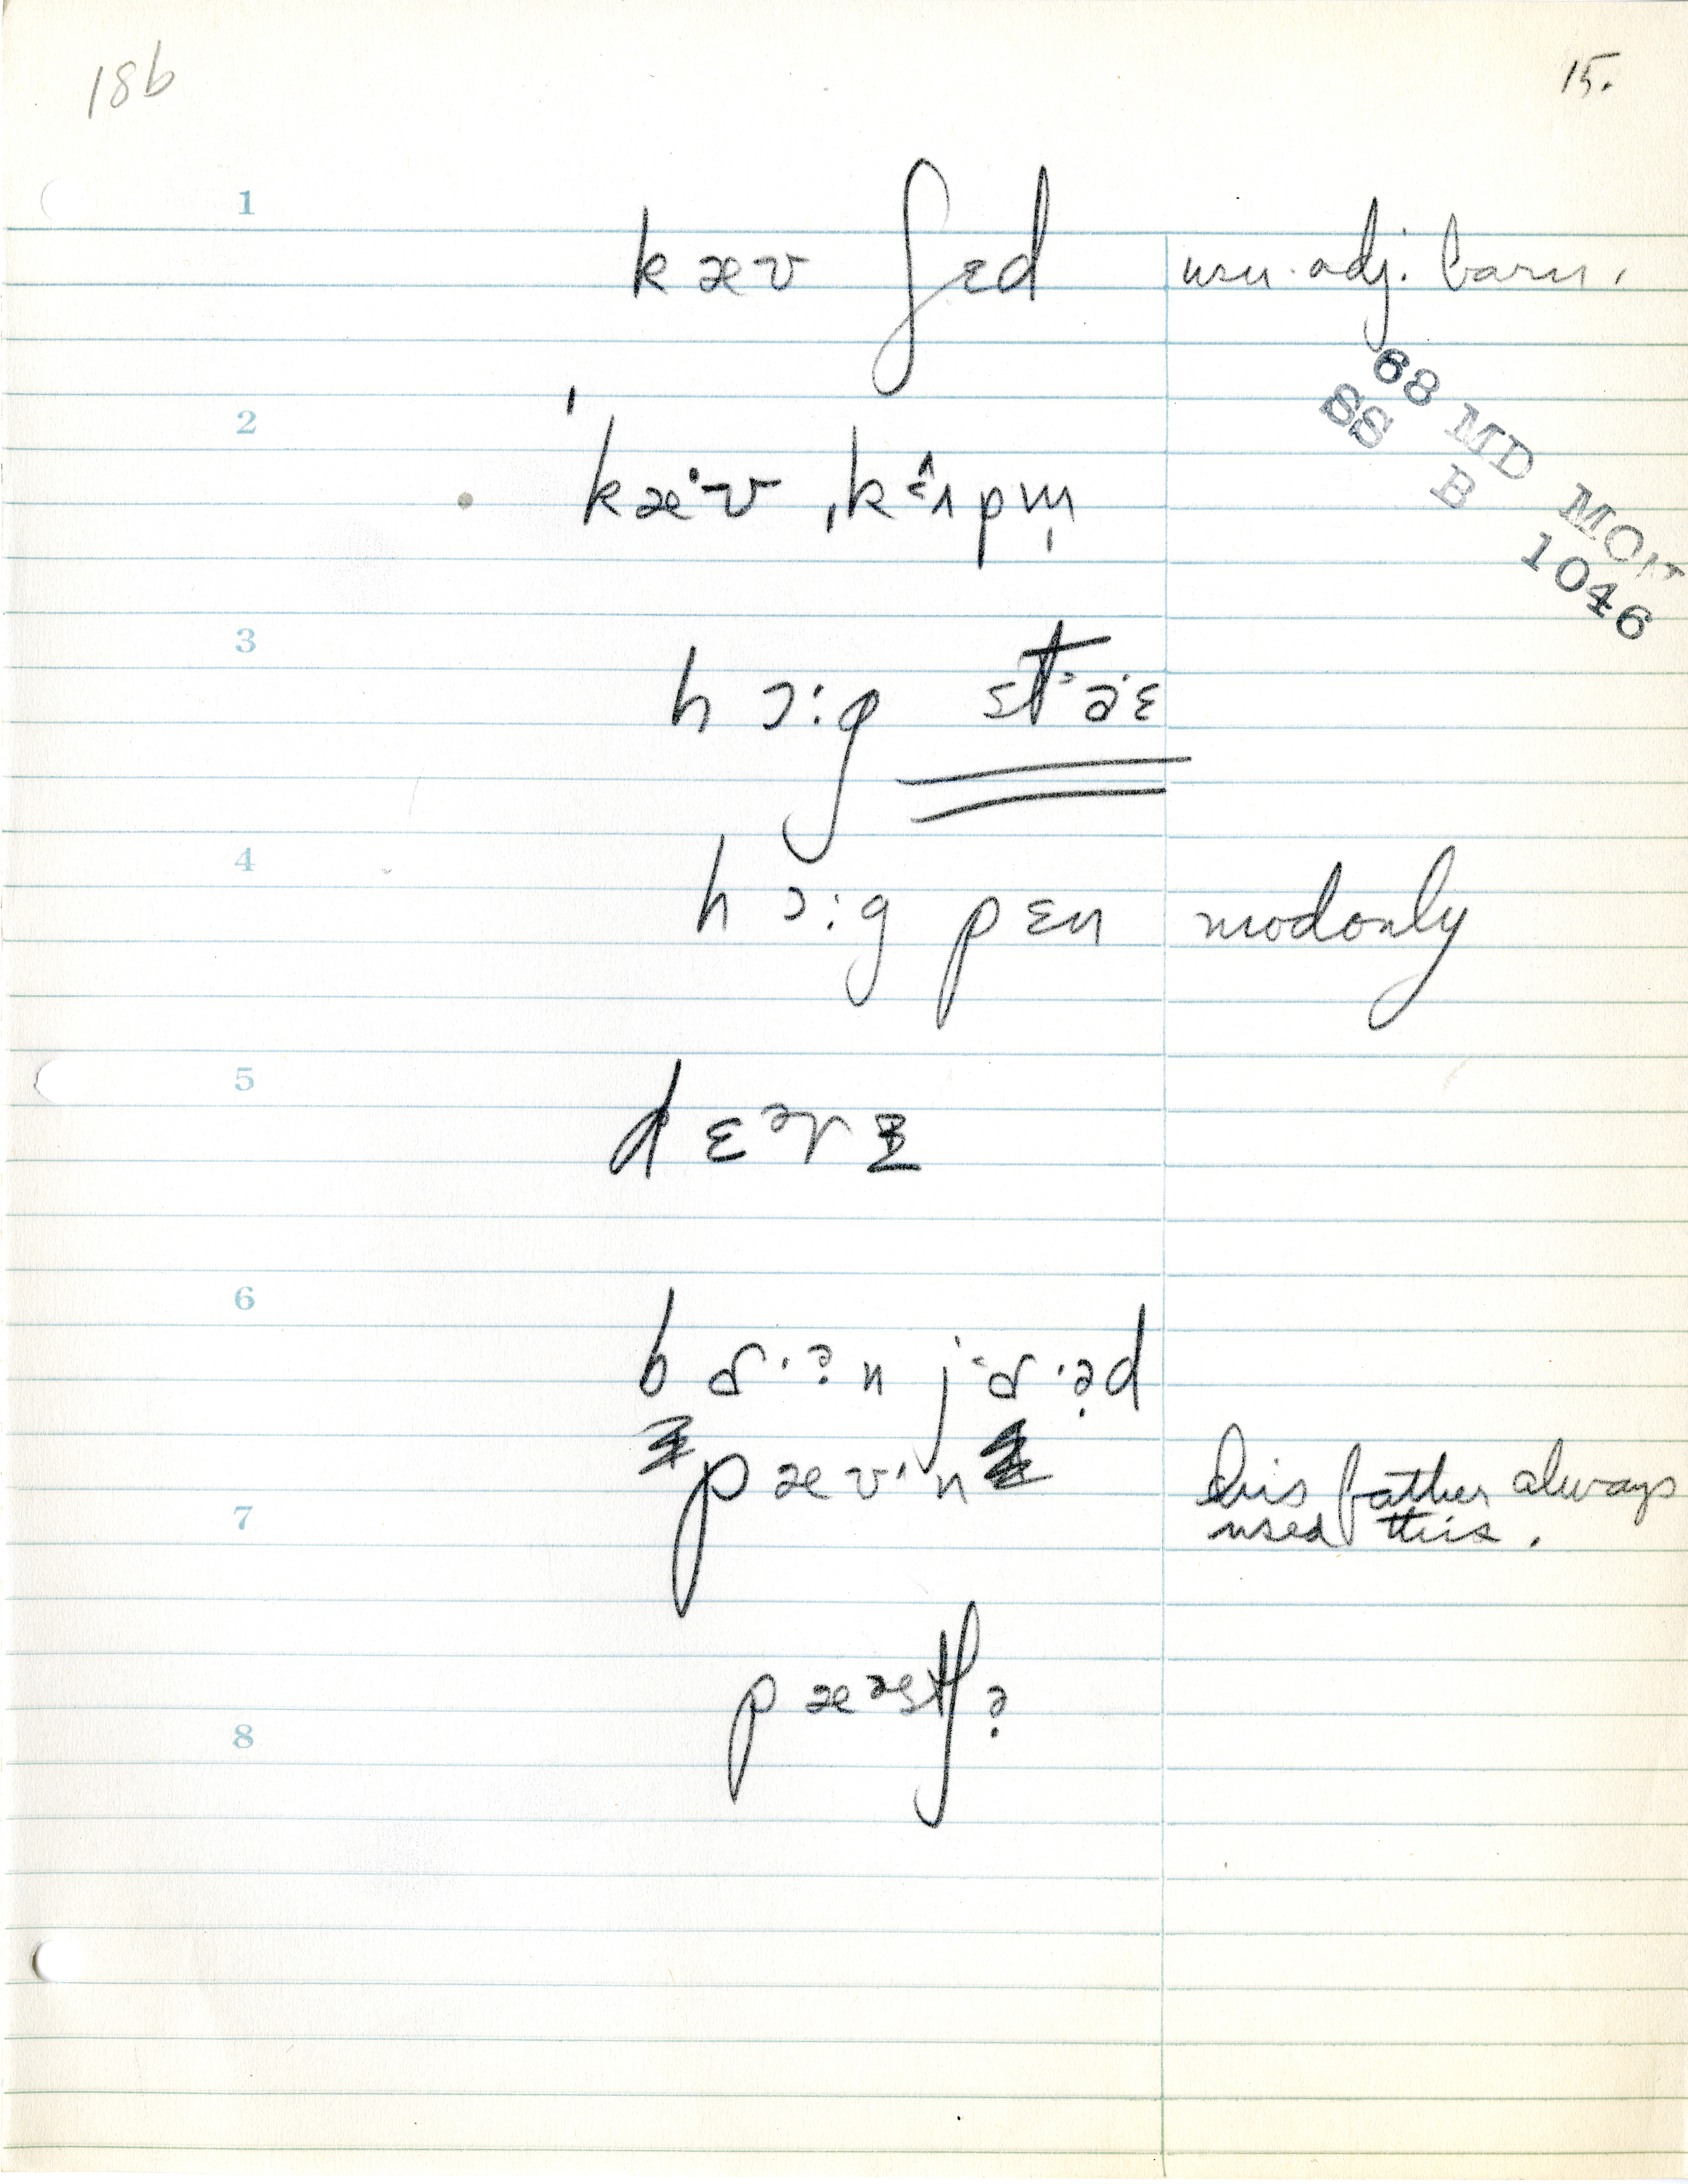 18b
15.
1
kæʊ ʃɛd usu. adj. barn.
68 MD MON
SS B 1046
2
ˈkæˑʊ ˌkɛ̂ɹpm̩
3
hɔːg st⁼əˑɛ
4
hɔːg pɛn mod only
5
dɛᵊɚ
6
bɑˑən j⁼ɑˑəd
pæʊˑn his father always
7
used this.
pæᵊstʃə
8